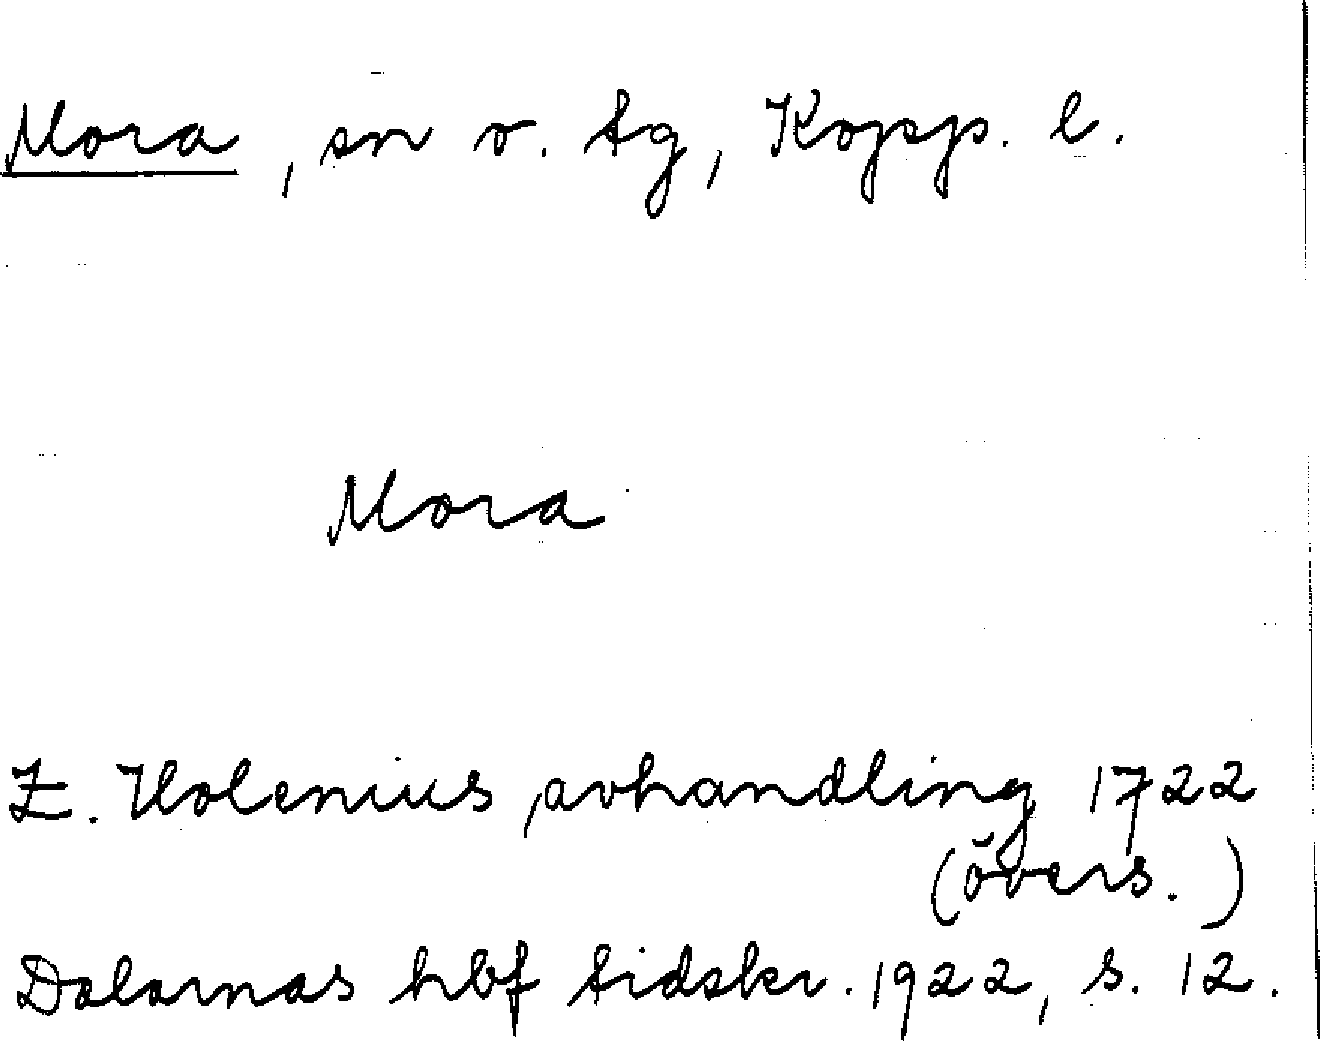 Mora, sn o. tg, Kopp. l.
Mora
Z. Holenius, avhandling 1722
(övers.)
Dalarnas hbf tidskr. 1922, s. 12.